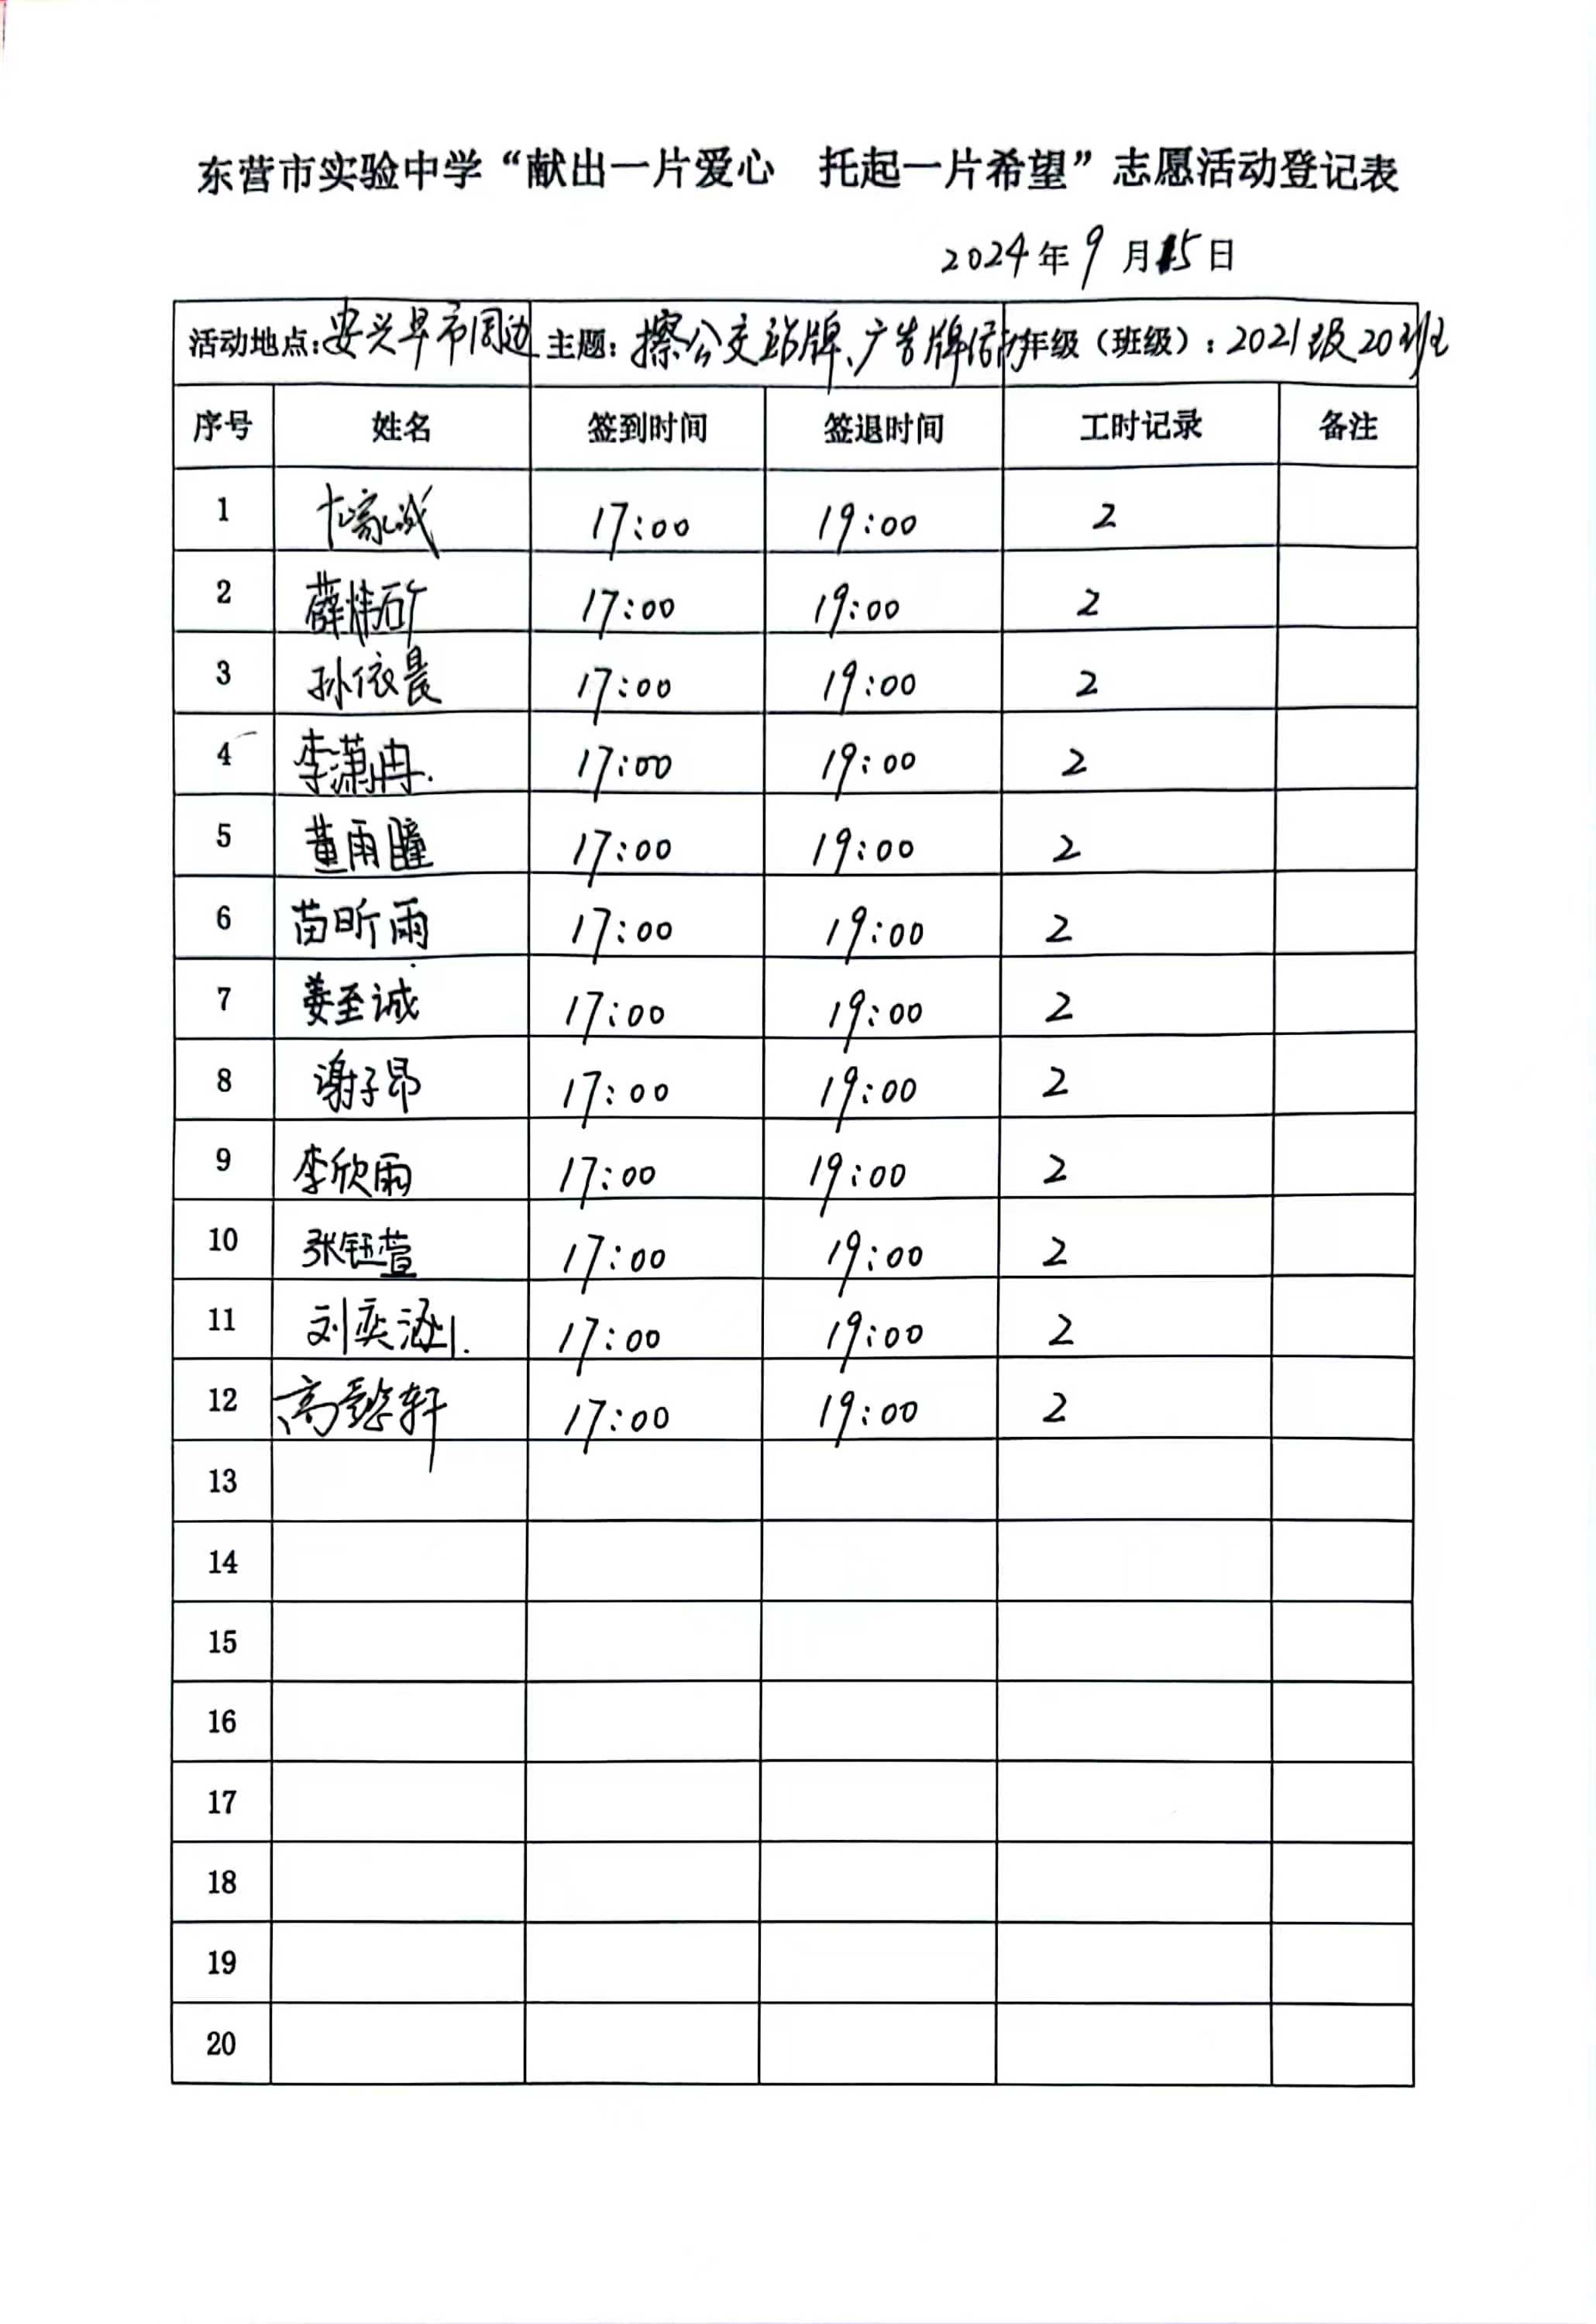 东营市实验中学“献出一片爱心 托起一片希望”志愿活动登记表
2024年9月15日
活动地点:安兴早市周边 主题:擦公交站牌、广告牌活动 年级(班级):2021级20班
序号 姓名 签到时间 签退时间 工时记录 备注
1 17:00 19:00 2
2 薛炜斫 17:00 19:00 2
3 孙依晨 17:00 19:00 2
4 李潇冉. 17:00 19:00 2
5 董雨瞳 17:00 19:00 2
6 苗昕雨 17:00 19:00 2
7 姜至诚 17:00 19:00 2
8 谢子昂 17:00 19:00 2
9 李欣雨 17:00 19:00 2
10 张钰萱 17:00 19:00 2
11 刘奕涵. 17:00 19:00 2
12 高懿轩 17:00 19:00 2
13
14
15
16
17
18
19
20